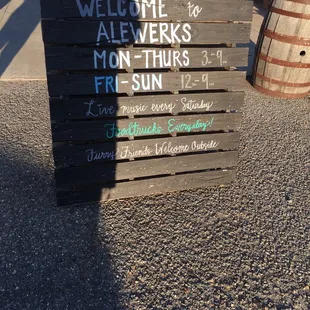 WELCOME to
ALEWERKS
MON-THURS 3-9
FRI-SUN 12-9
Live music every Saturday
Foodtrucks Everyday!
Furry Friends Welcome Outside